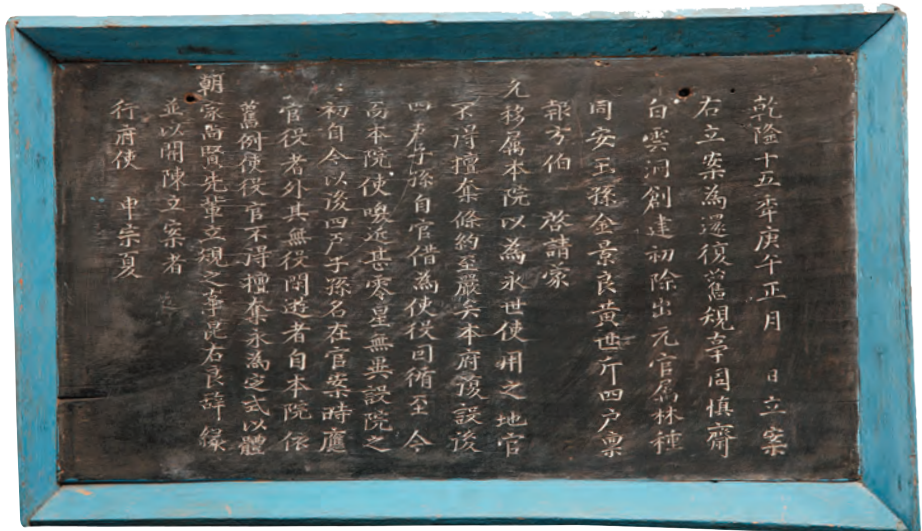 乾隆十五年庚午正月 日 立案
右立案為還復舊規事周慎齋
白雲洞創建初除出元官属林種
同安玉孫金景良黄世斤四户禀
報方伯 啓請蒙
允移属本院以為永世使用之地官
不得擅奪條約至嚴矣本府復設後
四户子孫自官借為使役因循至 今
而本院使喚近甚零星無異設院之
初自今以後四户子孫名在官案時應
官役者外其無役閑遊者自本院依
舊例使役官不得擅奪永為定式以體
朝家尚賢先輩立規之事是右良辞縁
並以開陳立案者
行府使 申宗夏